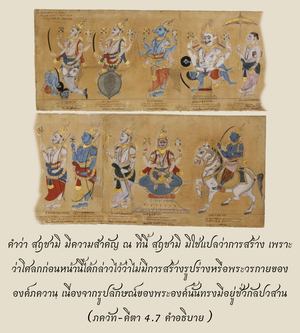 คำว่า สฤชามิ มีความสำคัญ ณ ที่นี้ สฤชามิ มิใช่แปลว่าการสร้าง เพราะ
ว่าโศลกก่อนหน้านี้ได้กล่าวไว้ว่าไม่มีการสร้างรูปร่างหรือพระวรกายของ
องค์ภควานฺ เนื่องจากรูปลักษณ์ของพระองค์นั้นทรงมีอยู่ชั่วกัลปวสาน
(ภควัท-คีตา 4.7 คำอธิบาย )